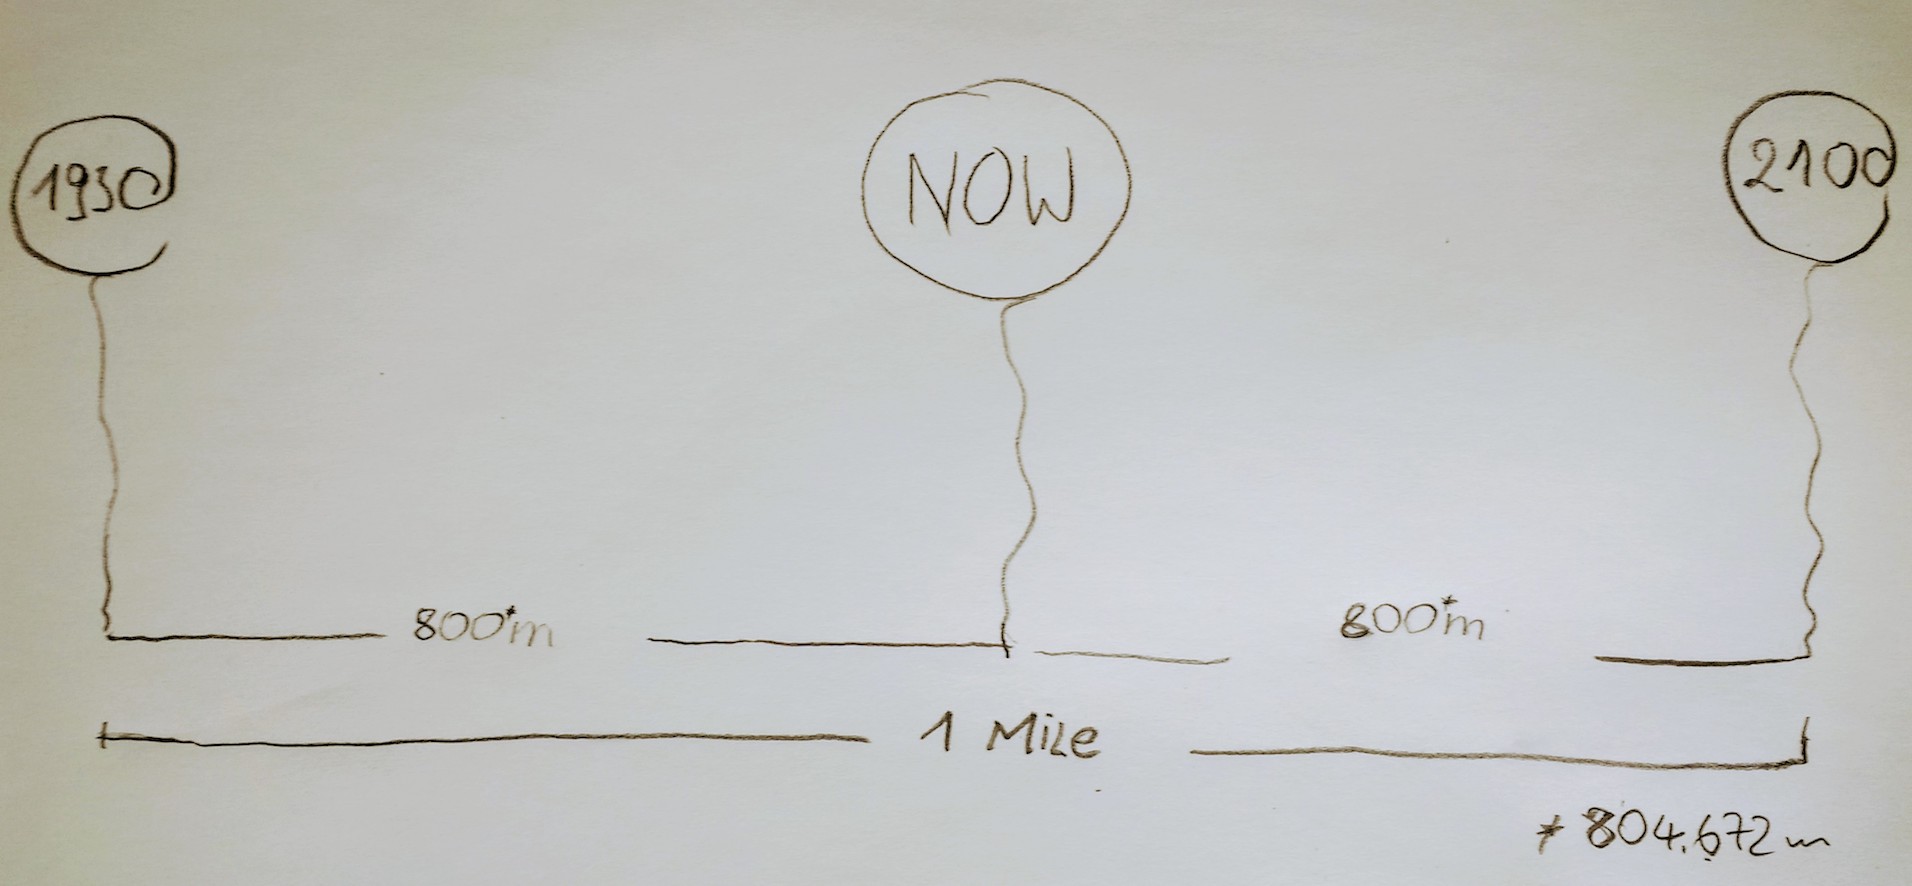 1950
NOW
2100
800*m
800*m
1 Mile
* 804.672m